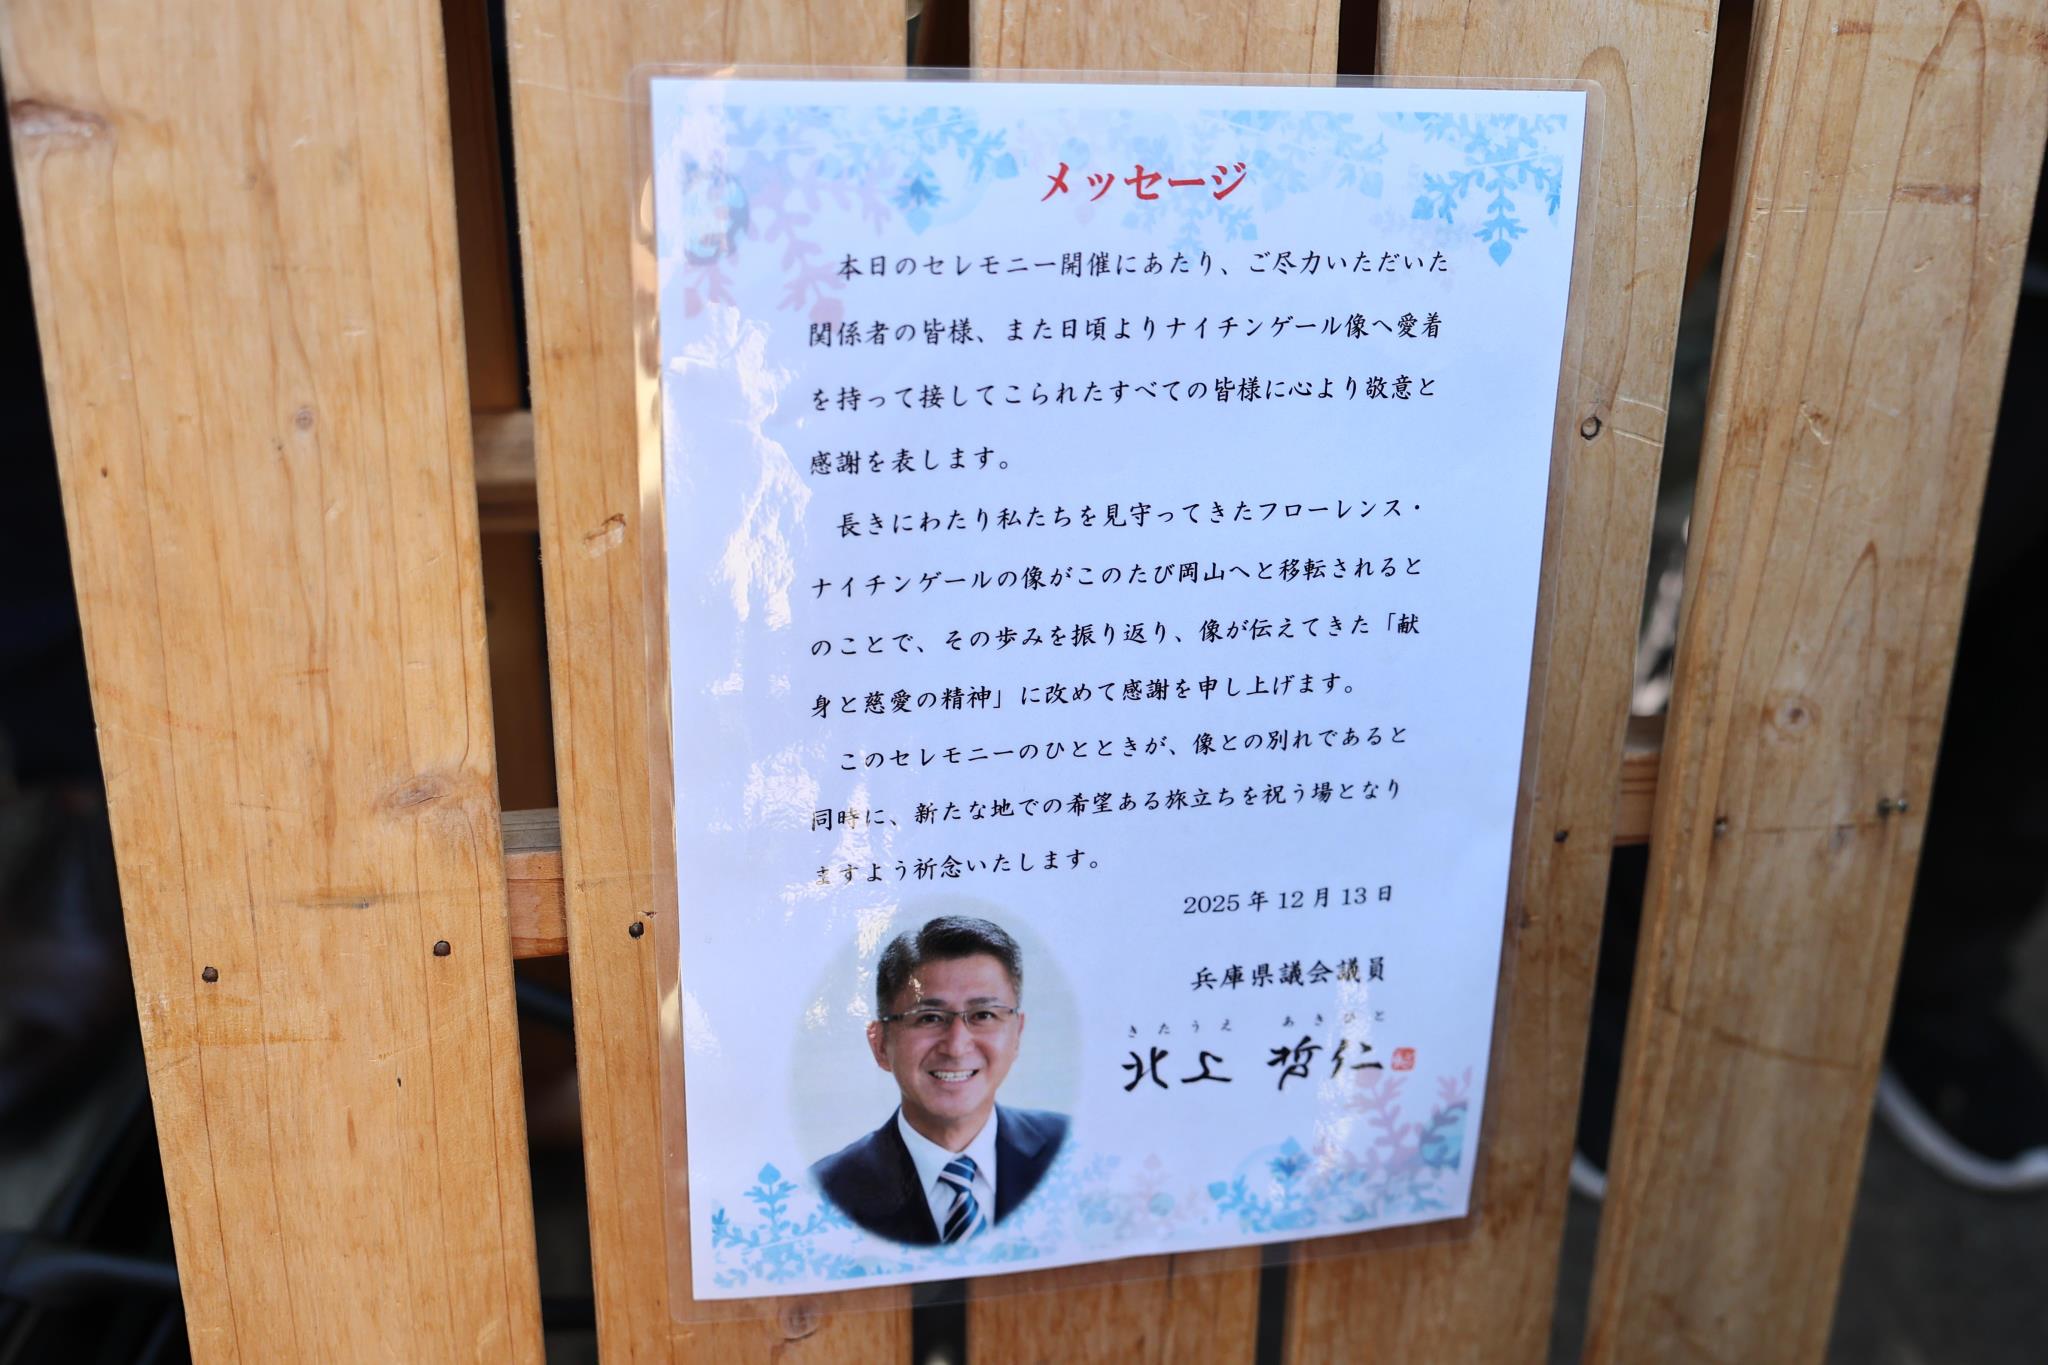 メッセージ
本日のセレモニー開催にあたり、ご尽力いただいた
関係者の皆様、また日頃よりナイチンゲール像へ愛着
を持って接してこられたすべての皆様に心より敬意と
感謝を表します。
長きにわたり私たちを見守ってきたフローレンス・
ナイチンゲールの像がこのたび岡山へと移転されると
のことで、その歩みを振り返り、像が伝えてきた「献
身と慈愛の精神」に改めて感謝を申し上げます。
このセレモニーのひとときが、像との別れであると
同時に、新たな地での希望ある旅立ちを祝う場となり
ますよう祈念いたします。
2025年12月13日
兵庫県議会議員
きたうえ あきひと
北上 哲仁